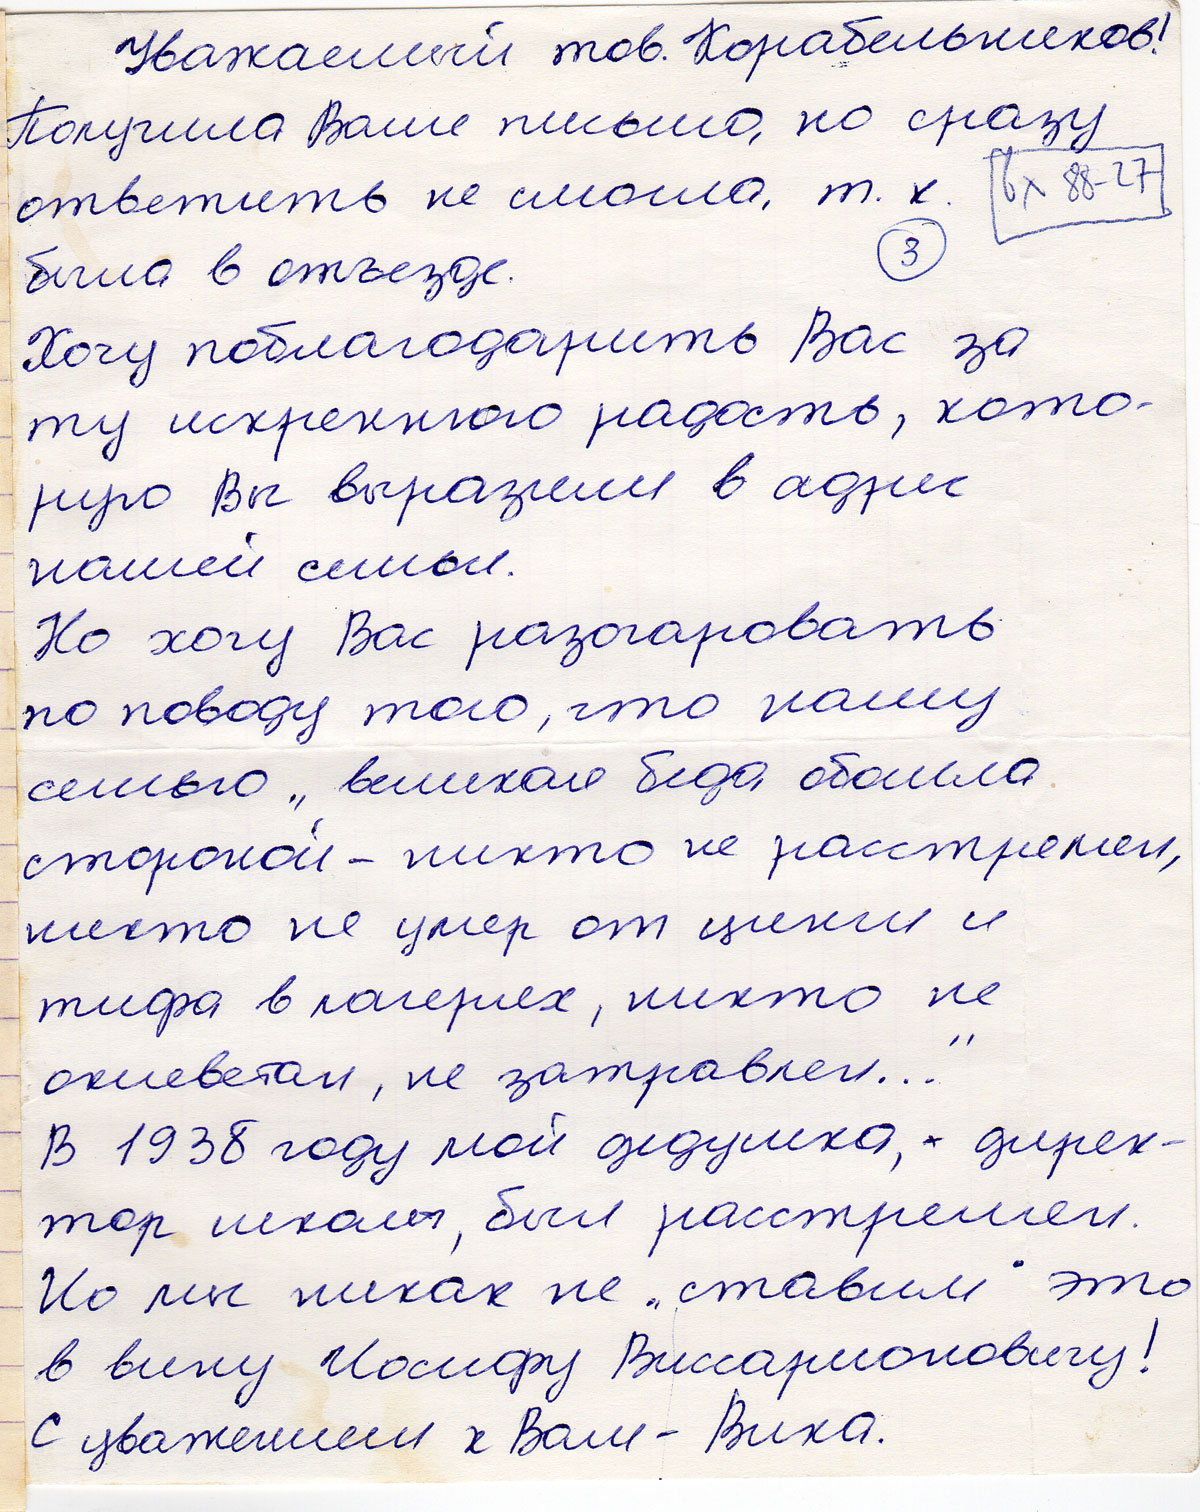 Уважаемый тов. Корабельников!
Получила Ваше письмо, но сразу
ответить не смогла, т. к.
вх 88-27
была в отъезде.
3
Хочу поблагодарить Вас за
ту искреннюю радость, кото-
рую Вы выразили в адрес
нашей семьи.
Но хочу Вас разочаровать
по поводу того, что нашу
семью „великая беда обошла
стороной – никто не расстрелян,
никто не умер от цинги и
тифа в лагерях, никто не
оклеветан, не затравлен..."
В 1938 году мой дедушка, - дирек-
тор школы, был расстрелян.
Но мы никак не „ставим" это
в вину Иосифу Виссарионовичу!
С уважением к Вам – Вика.